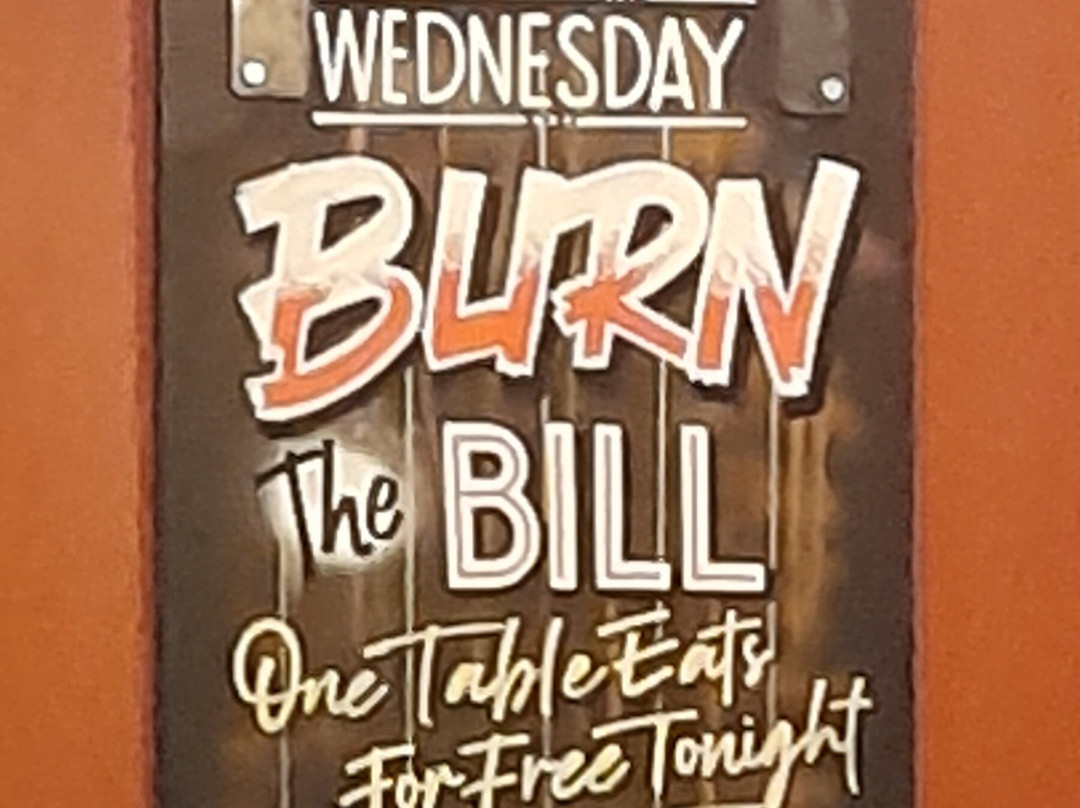 WEDNESDAY
BURN
The BILL
One Table Eats
For Free Tonight